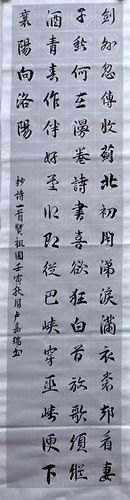 劍外忽傳收薊北初聞涕淚滿衣裳却看妻
子愁何在漫卷詩書喜欲狂白首放歌須縱
酒青春作伴好還鄉即從巴峽穿巫峽便下
襄陽向洛陽
抄詩一首贊祖國壬寅秋月卢嘉瑞书